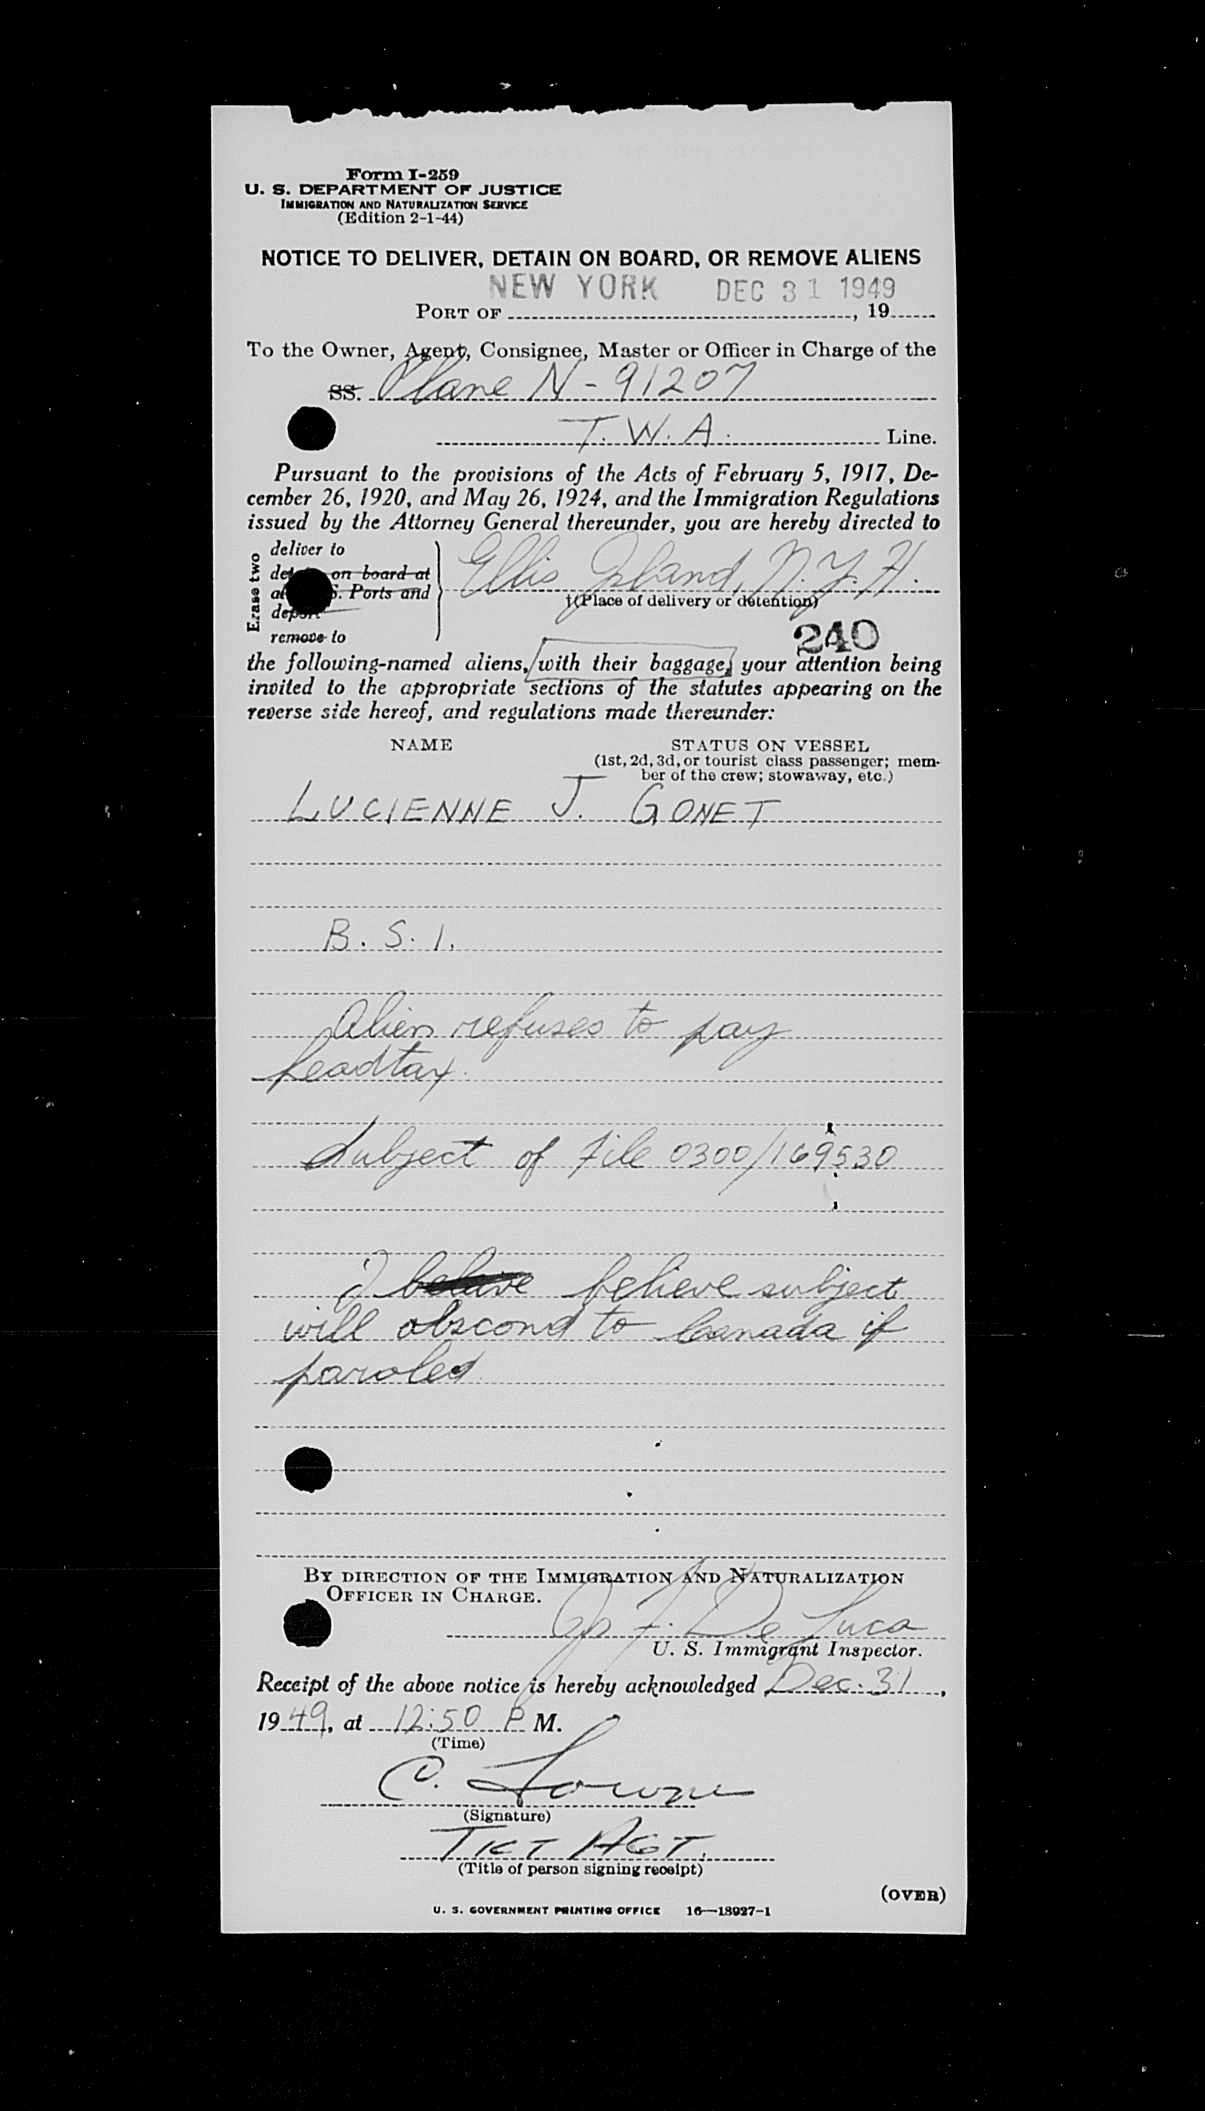 Form I-259
U. S. DEPARTMENT OF JUSTICE
IMMIGRATION AND NATURALIZATION SERVICE
(Edition 2-1-44)
NOTICE TO DELIVER, DETAIN ON BOARD, OR REMOVE ALIENS
NEW YORK DEC 31 1949
PORT OF , 19
To the Owner, Agent, Consignee, Master or Officer in Charge of the
SS. Plane N-91207
T. W. A. Line.
Pursuant to the provisions of the Acts of February 5, 1917, De-
cember 26, 1920, and May 26, 1924, and the Immigration Regulations
issued by the Attorney General thereunder, you are hereby directed to
Erase two
deliver to
on board at
Ports and
remove to
Ellis Island, N.Y.H.
†(Place of delivery or detention)
240
the following-named aliens, with their baggage, your attention being
invited to the appropriate sections of the statutes appearing on the
reverse side hereof, and regulations made thereunder:
NAME STATUS ON VESSEL
(1st, 2d, 3d, or tourist class passenger; mem-
ber of the crew; stowaway, etc.)
LUCIENNE J. GONET
B. S. I.
Alien refuses to pay
headtax.
Subject of File 0300/169530
I believe subject
will abscond to Canada if
paroled.
BY DIRECTION OF THE IMMIGRATION AND NATURALIZATION
OFFICER IN CHARGE.
F. De Luca
U. S. Immigrant Inspector.
Receipt of the above notice is hereby acknowledged Dec. 31,
1949, at 12:50 P M.
(Time)
C.
(Signature)
TKT AGT.
(Title of person signing receipt)
(OVER)
U. S. GOVERNMENT PRINTING OFFICE 16—18927-1